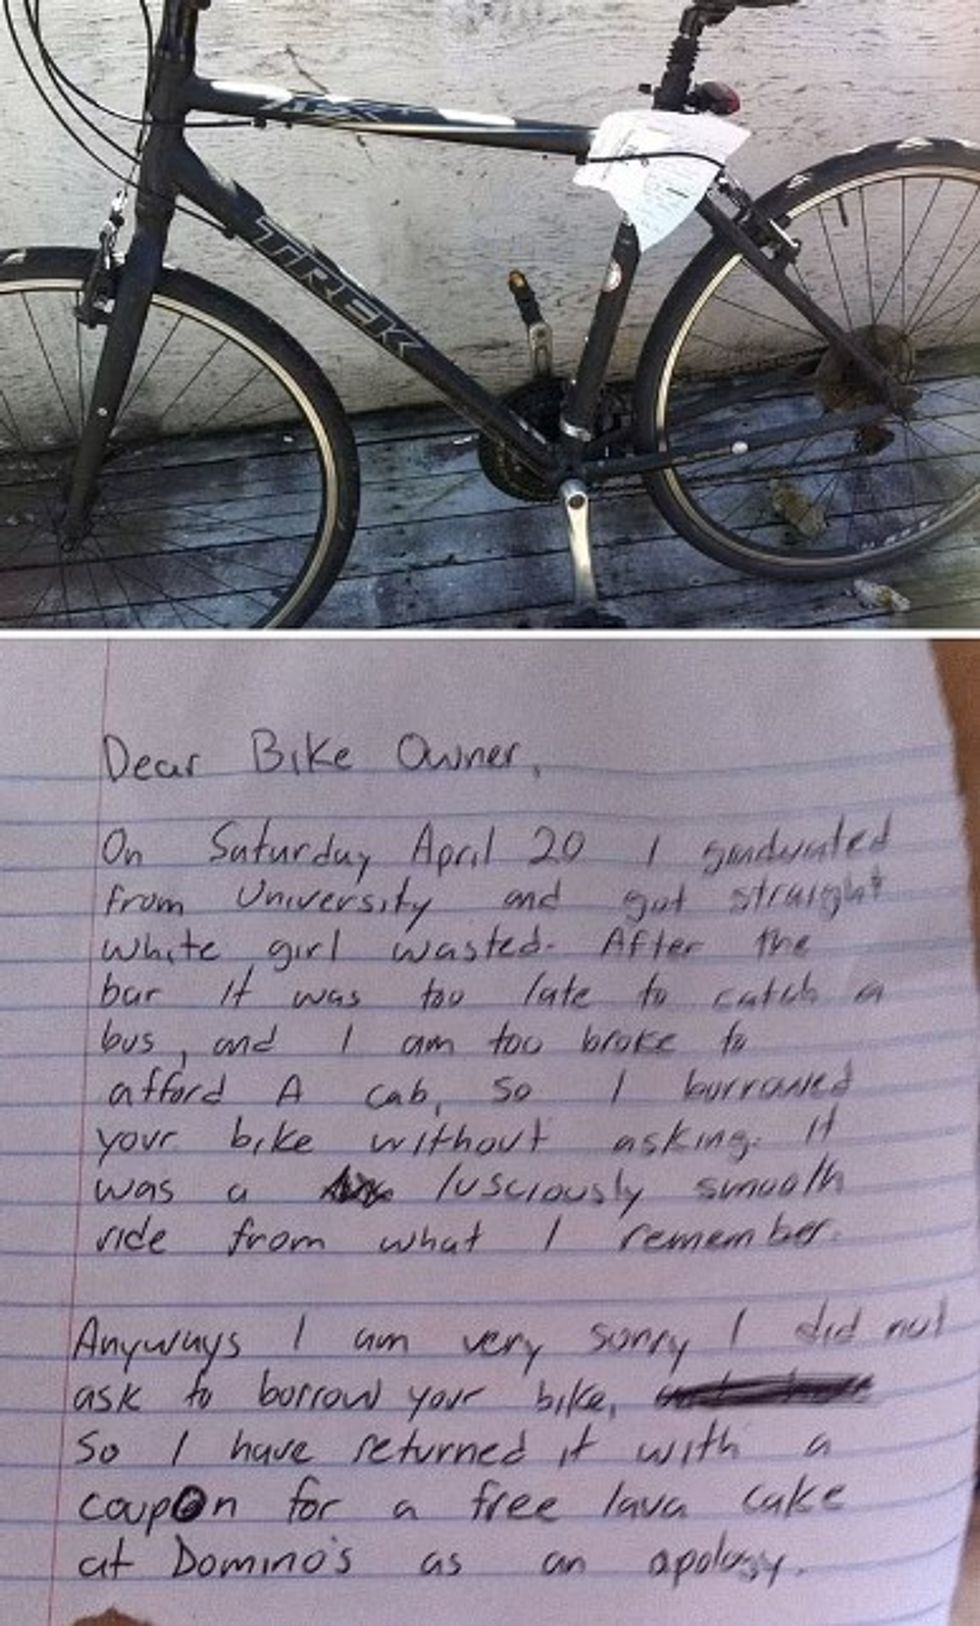 7.3 FX
TREK
Dear Bike Owner,
On Saturday April 20 I graduated
from University and got straight
white girl wasted. After the
bar It was too late to catch a
bus, and I am too broke to
afford A cab, so I burrowed
your bike without asking. It
was a lusciously smooth
ride from what I remember.
Anyways I am very sorry I did not
ask to borrow your bike,
So I have returned it with a
coupon for a free lava cake
at Domino's as an apology.